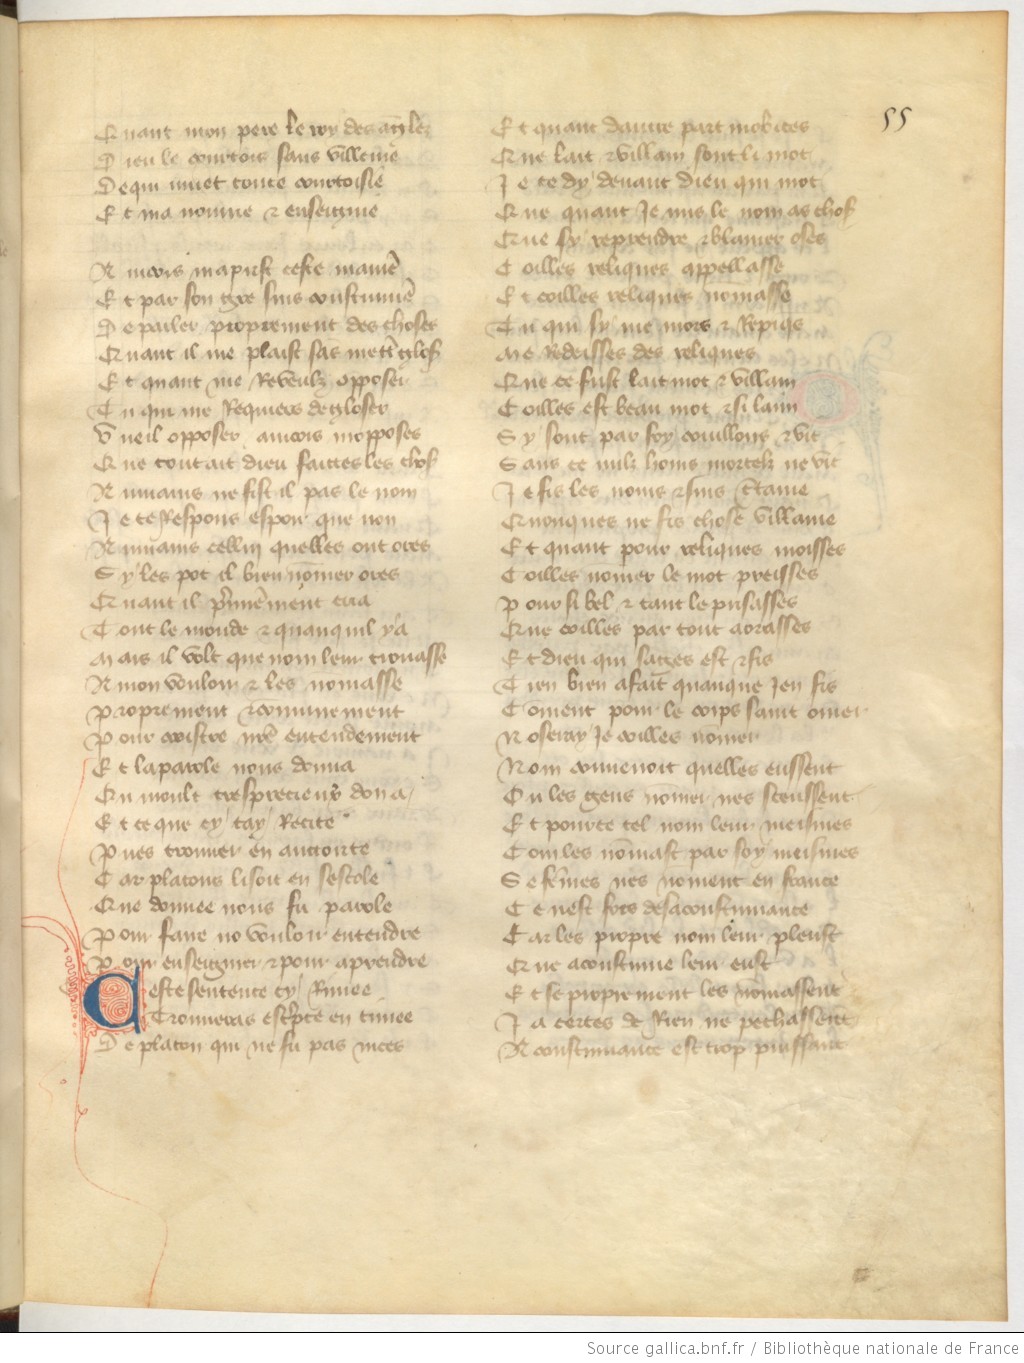 55
Quant mon pere le roy des angelz
Dieu le courtois sans villenie
De qui muet toute courtoisie
Et ma nourrie & enseignie
Aincois maprist ceste manie͛
Et par son gre suis coustumie͛
De parler proprement des choses
Quant il me plaist sãs mett͛ gloses
Et quant me Reveulz opposer
Tu qui me Requiers de gloser
Vueil opposer aincois mopposes
Que tout ait dieu faittes les choses
Au mains ne fist il pas le nom
Je te Respons espoir que non
Au mains celluy quelles ont ores
Sy les pot il bien nõmer ores
Quant il p͛mie͛ment crea
Tout le monde & quanquil y a
Mais il volt que nom leur trouvasse
A mon vouloir & les nomasse
Proprement & comunement
Pour croistre nr̃e entendement
Et la parole nous donna
Ou moult tres precieux don a
Et ce que cy tay Recite
Pues trouver en auctorite
Car platons lisoit en sescole
Que donnee nous fu parole
Pour faire no vouloir entendre
Pour enseignier & pour aprendre
Ceste sentence cy Rimee
Trouveras esc͛pte en timee
De platon qui ne fu pas nices
Et quant dautre part mobices
Que lait & villain sont li mot
Je te dy devant dieu qui mot
Que quant Je mis le nom as choses
Que sy reprendre & blamer oses
Coilles reliques appellasse
Et coilles reliques nomasse
Tu qui sy me mors & Repiqs
Me Redeisses des reliques
Que ce fust lait mot & villain
Coilles est beau mot & si laim
Sy sont par foy couillons & vit
Sans ce nulz homs mortelz ne vit
Je fis les noms & suis c͛taine
Quonques ne fis chose villaine
Et quant pour reliques moisses
Coilles nõmer le mot preisses
Pour si bel & tant le prisasses
Que coilles par tout aorasses
Et dieu qui sages est & fis
Tien bien a fait quanque Jen fis
Cõment pour le corps saint omer
Noseray Je coilles nõmer
Nom convenoit quelles eussent
Ou les gens nõmer nes sceussent
Et pource tel nom leur meismes
Com les nõmast par soy meismes
Se fẽmes nes noment en france
Ce nest fors desacoustumance
Car les propre nom leur pleust
Que acoustume leur eust
Et se proprement les nõmassent
Ja certes de Rien ne pechassent
Acoustumance est trop puissant
Source gallica.bnf.fr / Bibliothèque nationale de France